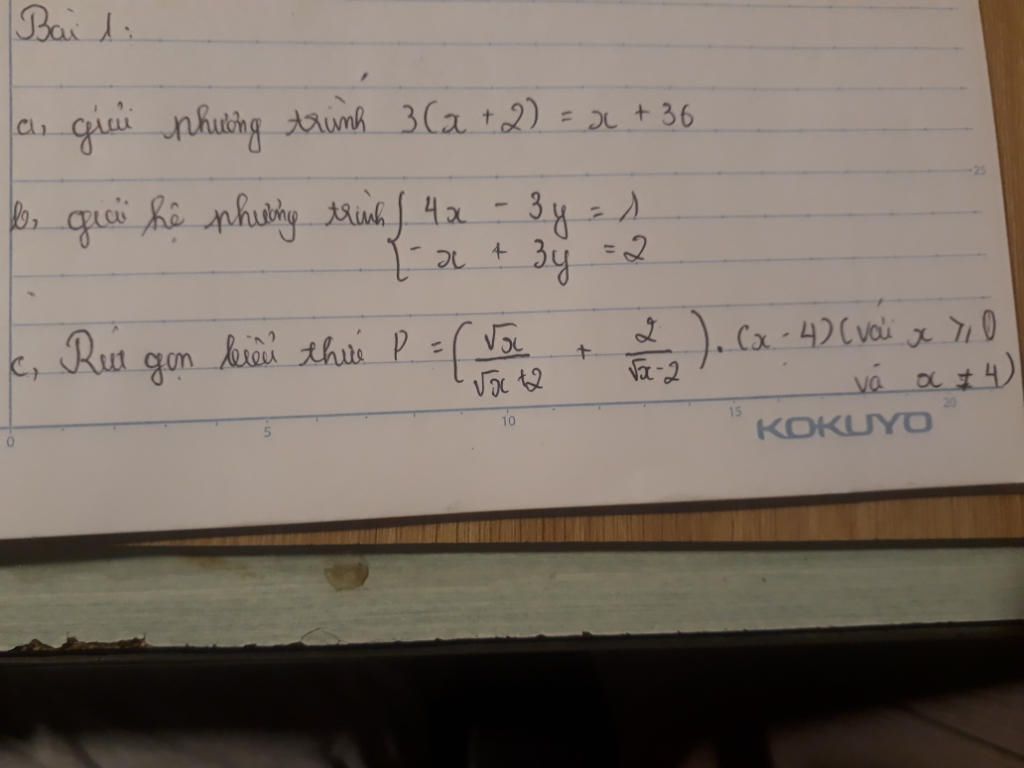 Bài 1:
a, giải phương trình 3(x + 2) = x + 36
25
b, giải hệ phương trình { 4x - 3y = 1
- x + 3y = 2
c, Rút gọn biểu thức P = (√x/(√x + 2) + 2/(√x - 2)) . (x - 4) (với x ⩾ 0
và x ≠ 4)
0 5 10 15 20
KOKUYO